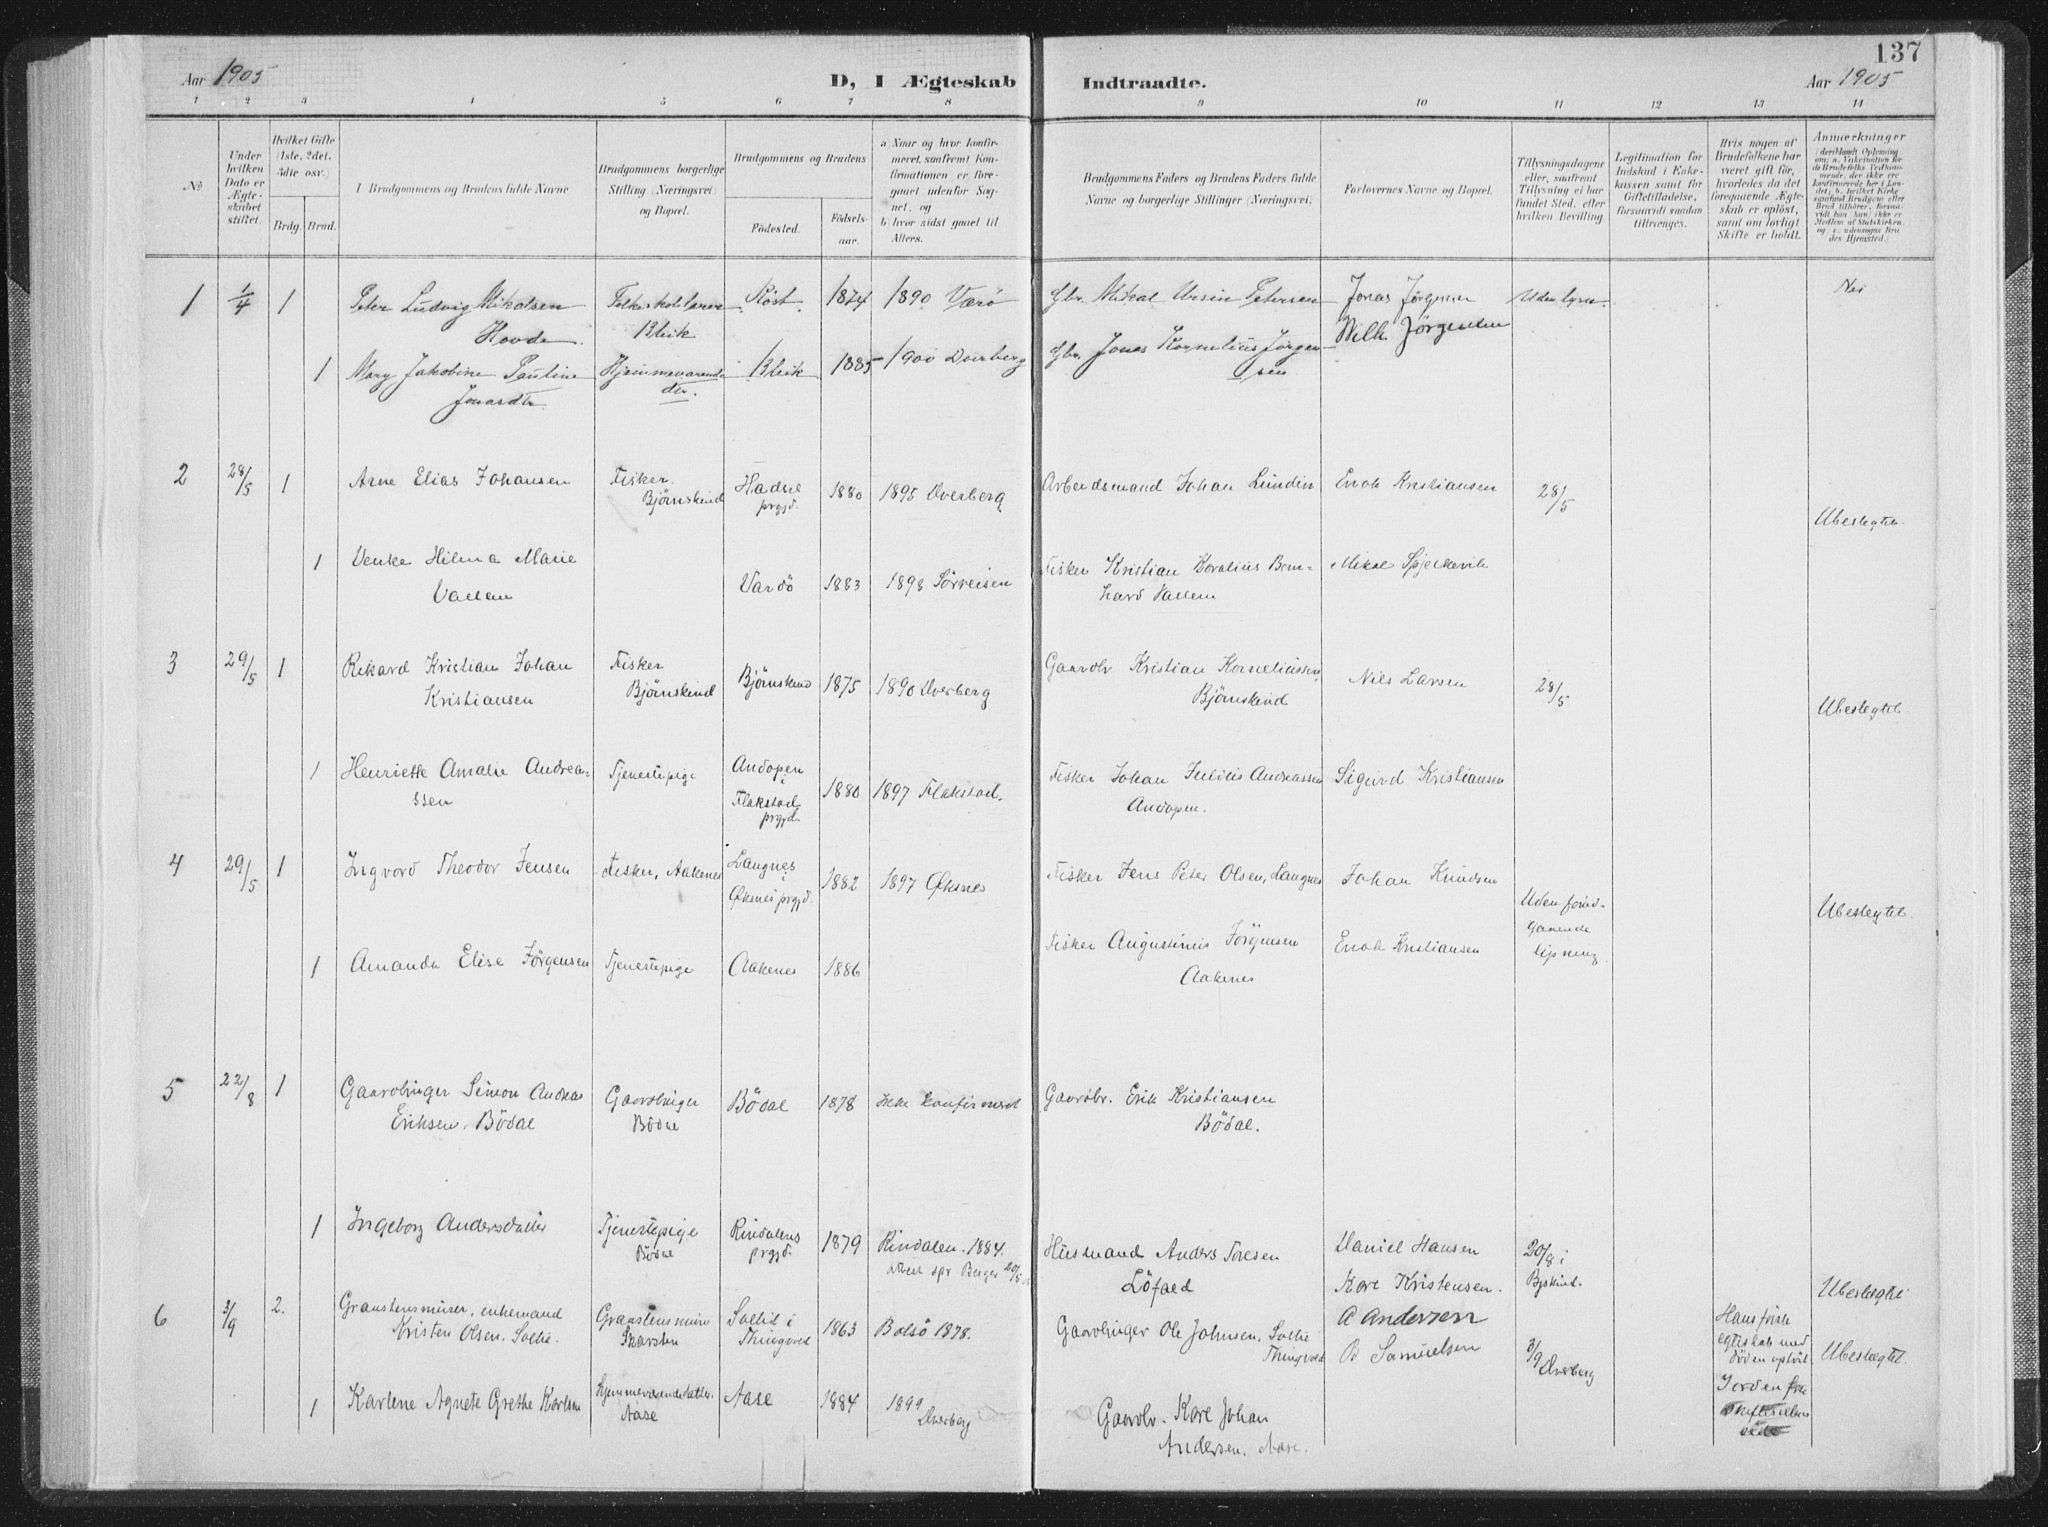 137
Aar 1905
D, I Ægteskab
Indtraadte.
Aar 1905
1 2 3 4 5 6 7 8 9 10 11 12 13 14
№
Under hvilken Dato er Ægteskabet stiftet.
Hvilket Gifte (1ste, 2det, 3die osv.)
Brdg. Brud.
Brudgommens og Brudens fulde Navne
Brudgommens borgerlige Stilling (Næringsvei) og Bopæl.
Brudgommens og Brudens
Fødested.
Fødselsaar.
a) Naar og hvor konfirmeret, saafremt Konfirmationen er foregaaet udenfor Sognet, og
b) hvor sidst gaaet til Alters.
Brudgommens Faders og Brudens Faders fulde Navne og borgerlige Stillinger (Næringsvei.
Forlovernes Navne og Bopæl.
Tillysningsdagene eller, saafremt Tillysning ei har fundet Sted, efter hvilken Bevilling.
Legitimation for Indskud i Enkekassen samt for Giftetilladelse, forsaavidt saadan tiltrænges.
Hvis nogen af Brudefolkene har været gift før, hvorledes da det foregaaende Ægteskab er opløst, samt om lovligt Skifte er holdt.
Anmærkninger
1 1/4 1 Peter Ludvig Mikalsen
Hovde.
Folkeskolelærer
Bleik
Röst. 1874 1890 Værö
Gbr. Mikal Ursin Petersen
Jonas Jörgensen
Wilh. Jörgensen
Nei
1 Mary Jakobine Pauline
Jonasdtr.
Hjemmeværende
dtr.
Bleik 1885 1900 Dverberg
Gbr. Jonas Kornelius Jörgen-
sen
2 28/5 1 Arne Elias Johansen
Fisker.
Bjørnskind
Hadsel
prgjd.
1880 1895 Dverberg
Arbeidsmand Johan Lundin
Enok Kristiansen
28/5
Ubeslegtet.
1 Venke Hilma Marie
Vardö 1883 1898 Sörreisen
Fisker Kristian
Mikal
3 29/5 1 Rikard Kristian Johan
Kristiansen
Fisker
Bjørnskind
Bjørnskind 1875 1890 Dverberg
Gaardbr Kristian Korneliussen,
Bjørnskind
Nils Larsen
28/5
Ubeslegtet.
1 Henriette Amalie Andreas-
sen
Tjenestepige
Andopen
i
Flakstad
prgjd.
1880 1897 Flakstad.
Fisker Johan Julius Andreassen
Andopen.
Sigurd Kristiansen
4 29/5 1 Ingvard Theodor Jensen
Fisker, Aaknes
Langnes
i
Øksnes prgjd.
1882 1897 Øksnes
Fisker Jens Peter Olsen, Langnes
Johan Knudsen
Uden forud-
gaaende
lysning.
Ubeslegtet.
1 Amanda Elise Jørgensen
Tjenestepige
Aaknes 1886
Fisker Augustinus Jørgensen
Aaknes
Enok Kristiansen
5 22/8 1 Gaardbruger Simon Andreas
Eriksen, Bödal
Gaardbruger
Bödal
Bödal 1878 Ikke konfirmeret
Gaardbr. Erik Kristiansen
Bödal.
1 Ingeborg Andersdatter
Tjenestepige
Bödal
Rindalens
prgjd.
1879 Rindalen. 1884.
Husmand Anders Toresen
Löfald
Daniel Hansen
Karl Kristensen.
20/8 i
Bjskind.
Ubeslegtet
6 3/9 2. Graastensmurer, enkemand
Kristen Olsen, Sollie.
Graastensmurer
Skarsten
Sollid i
Thingvold
1863 Bolsö 1878.
Gaardbruger Ole Johnsen, Sollie
Thingvold
A Andersen
O Samuelsen
3/9
Dverberg
Hans første
egteskab med
döden oplöst
Ubeslægtet.
1 Karlene Agnete Grethe Karlsen
Hjemmeværende datter.
Aase
Aase 1884 1899
Dverberg
Gaardbr. Karl Johan
Andersen, Aase.